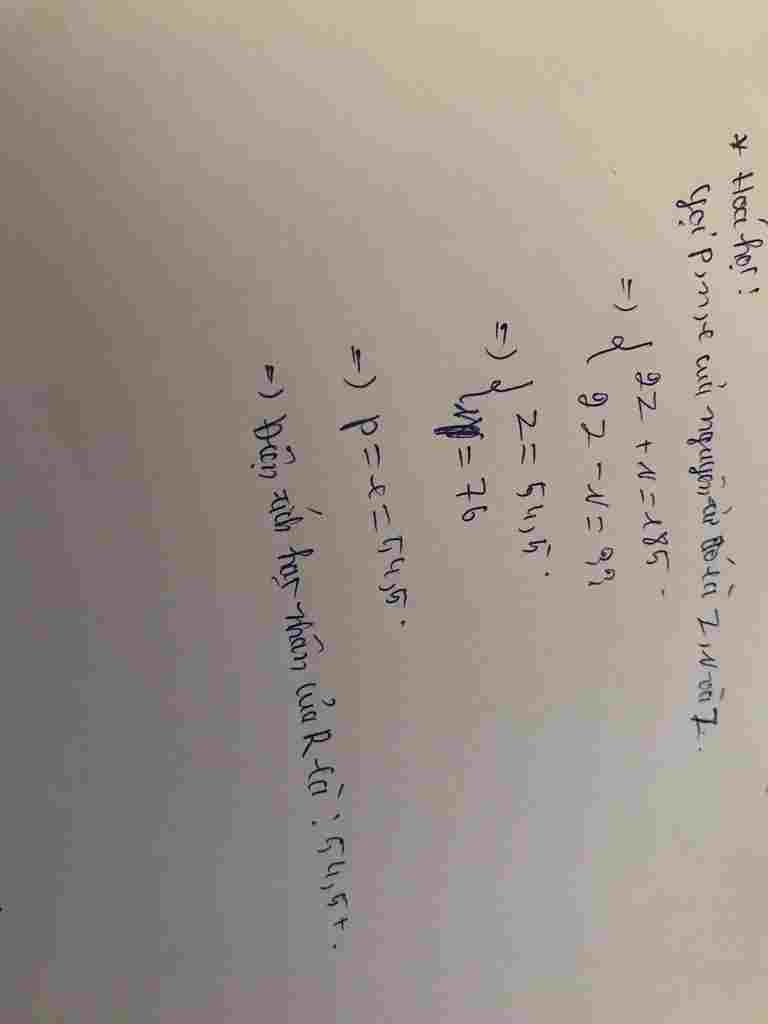 * Hoá học:
Gọi p, n, e của nguyên tử đó là Z, N và Z.
=) { 2Z + N = 185.
2Z - N = 33
=) { Z = 54,5.
N = 76
=) p = e = 54,5.
=) Điện tích hạt nhân của R là: 54,5+.